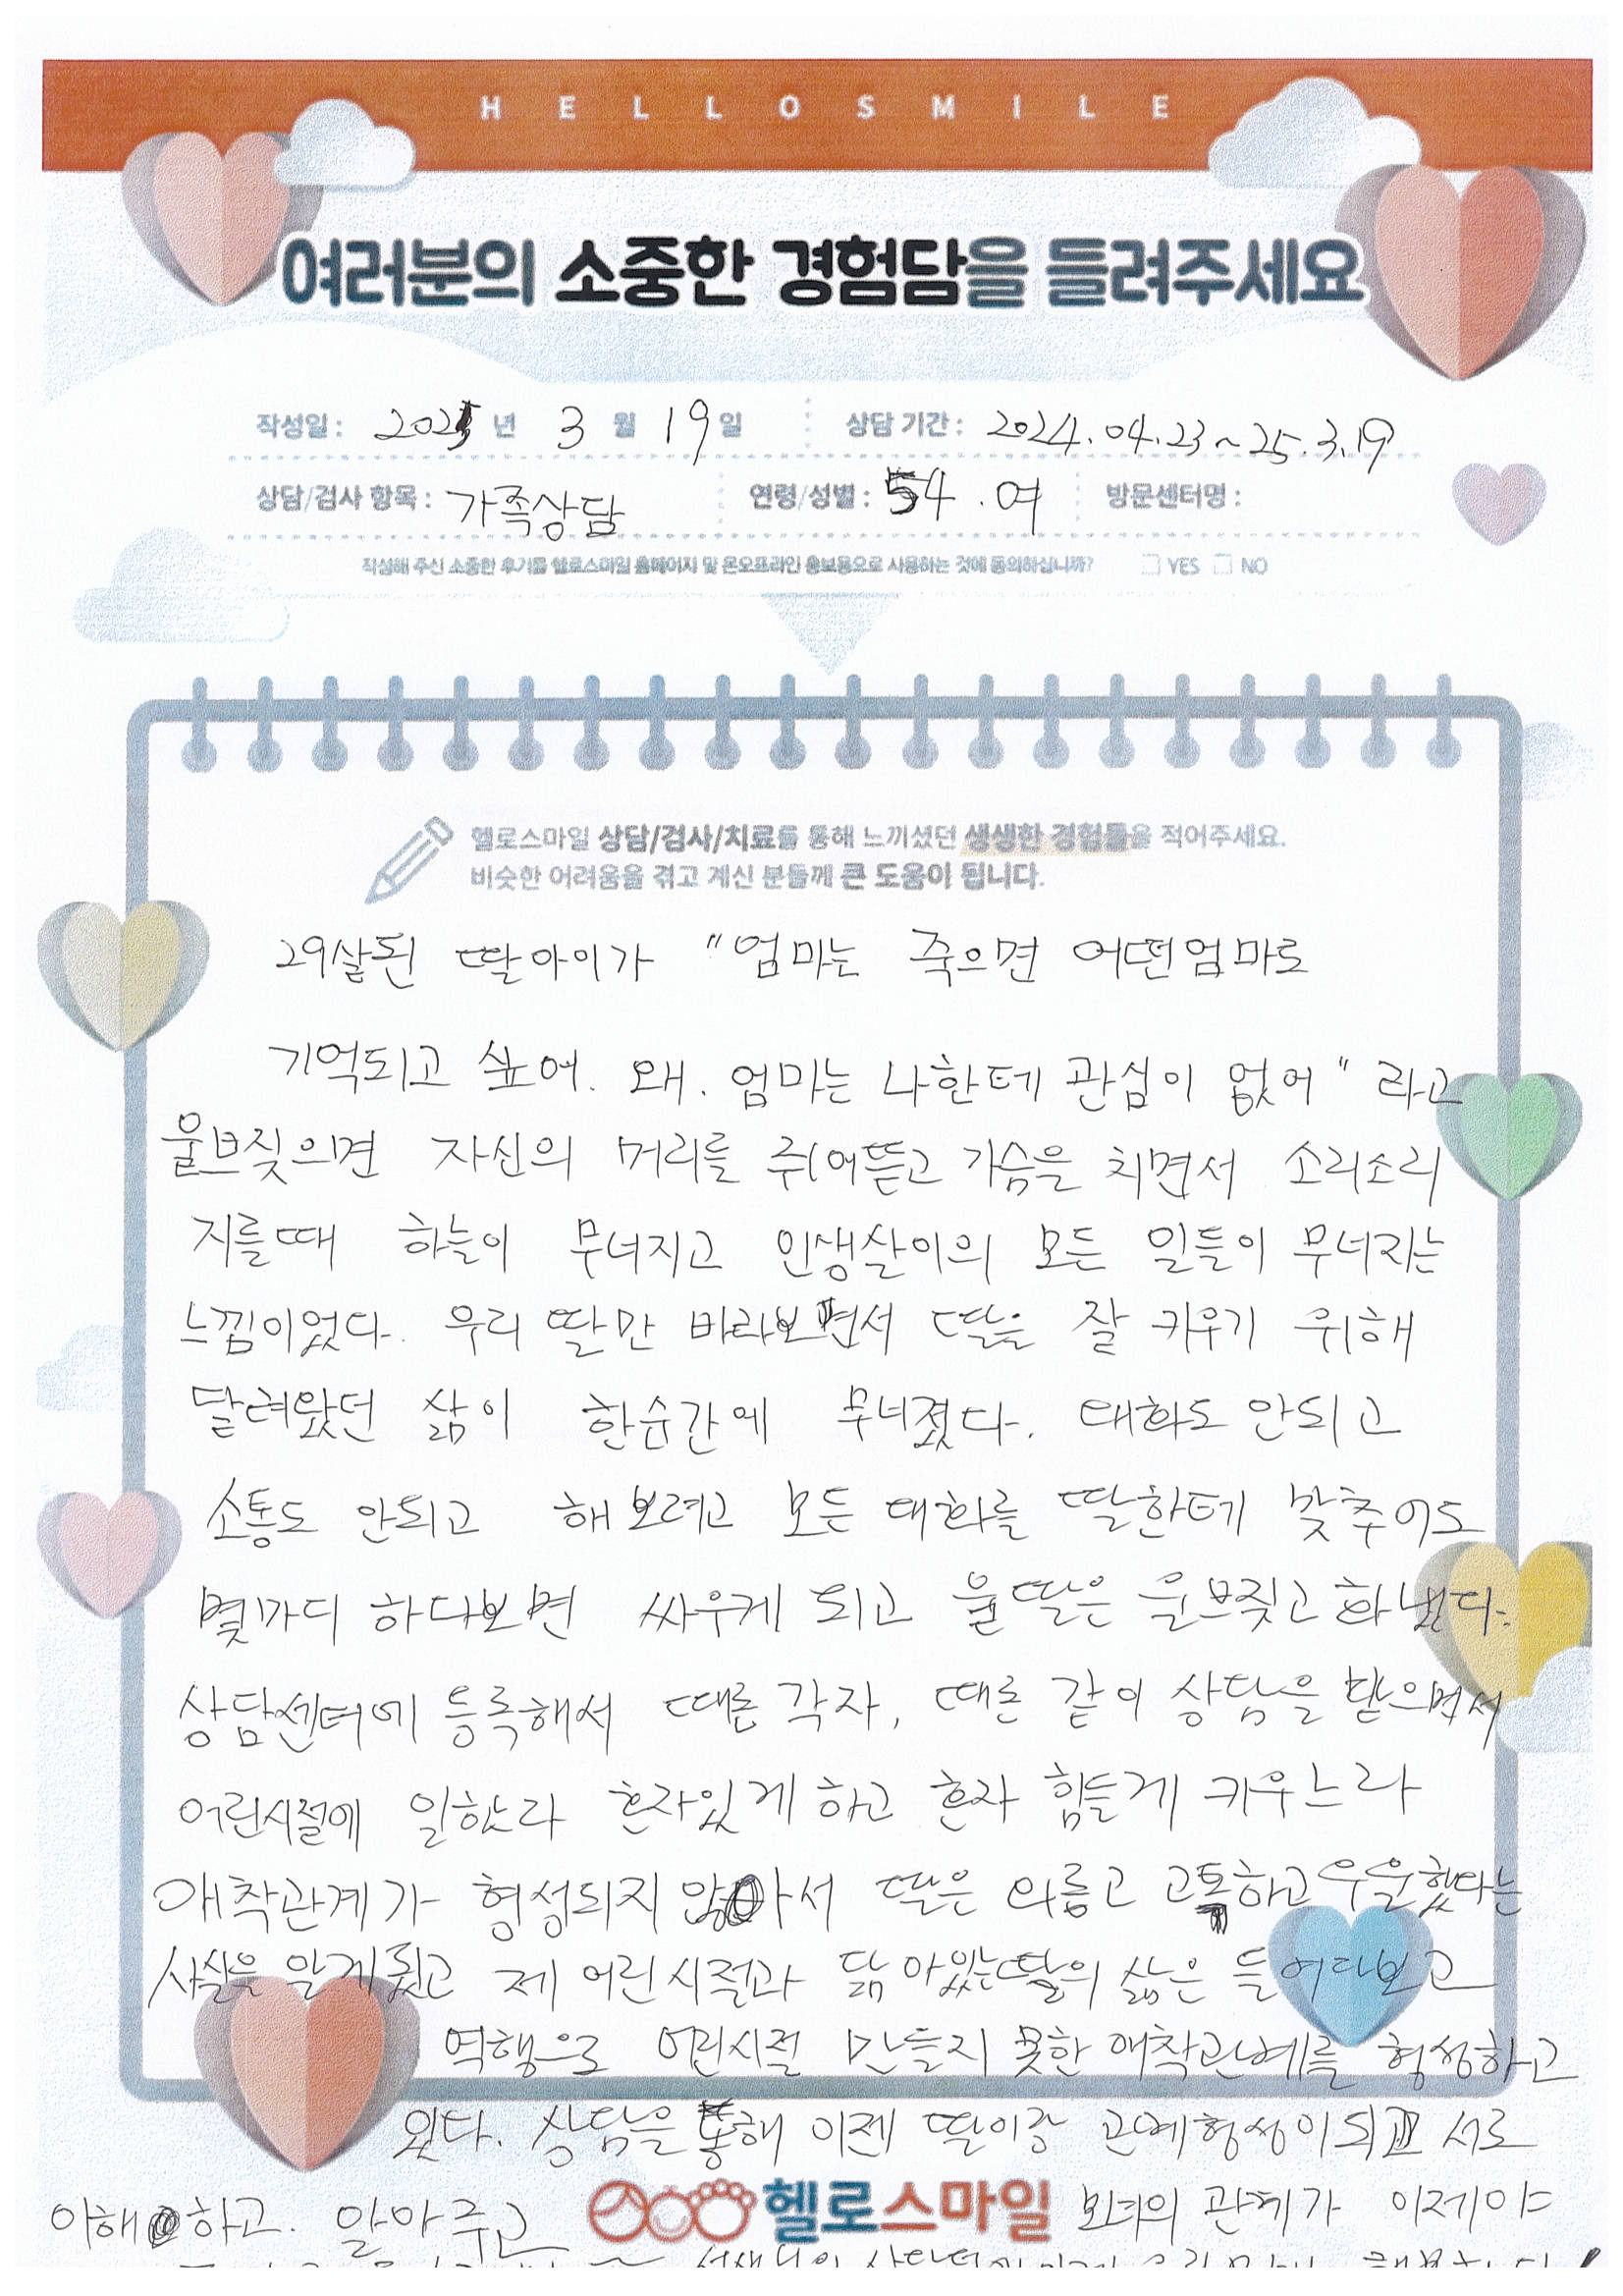 HELLOSMILE
여러분의 소중한 경험담을 들려주세요
작성일 : 2025 년 3 월 19 일 상담 기간 : 2024.04.23~25.3.19
상담/검사 항목 : 가족상담 연령/성별 : 54 . 여 방문센터명 :
작성해 주신 소중한 후기를 헬로스마일 홈페이지 및 온오프라인 홍보용으로 사용하는 것에 동의하십니까? YES NO
헬로스마일 상담/검사/치료를 통해 느끼셨던 생생한 경험들을 적어주세요.
비슷한 어려움을 겪고 계신 분들께 큰 도움이 됩니다.
29살된 딸아이가 "엄마는 죽으면 어떤엄마로
기억되고 싶어. 왜. 엄마는 나한테 관심이 없어" 라고
울브짖으면 자신의 머리를 쥐어뜯고 가슴을 치면서 소리소리
지를때 하늘이 무너지고 인생살이의 모든 일들이 무너지는
느낌이었다. 우리 딸만 바라보면서 딸을 잘 키우기 위해
달려왔던 삶이 한순간에 무너졌다. 대화도 안되고
소통도 안되고 해보려고 모든 대화를 딸한테 맞추어도
몇마디 하다보면 싸우게 되고 울딸은 울브짖고 화냈다.
상담센터에 등록해서 때론 각자, 때론 같이 상담을 받으면서
어린시절에 일하느라 혼자있게 하고 혼자 힘들게 키우느라
애착관계가 형성되지 않아서 딸은 외롭고 고독하고 우울했다는
사실을 알게됬고 제 어린시절과 닮아있는 딸의 삶은 들어다보고
역행으로 어린시절 만들지 못한 애착관계를 형성하고
있다. 상담을 통해 이젠 딸이랑 관계형성이 되고 서로
이해하고. 알아주고 헬로스마일 모녀의 관계가 이제야